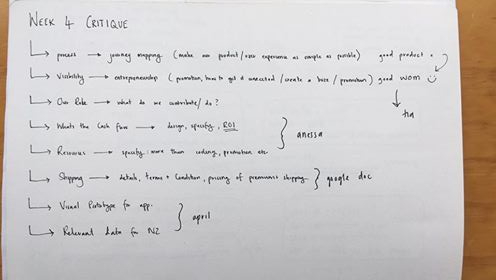 WEEK 4 CRITIQUE
process → journey mapping (make our product/user experience as simple as possible) good product
Visibility → entrepreneurship (promotion, how to get it connected / create a buzz / promotion) good WOM
Our Role → what do we contribute / do?
Whats the Cash flow → design, specify, ROI
anessa
Resources → specify more than coding, promotion etc
Shipping → details, terms + Condition, pricing of shipping google doc
Visual Prototype for app.
april
Relevant data for NZ